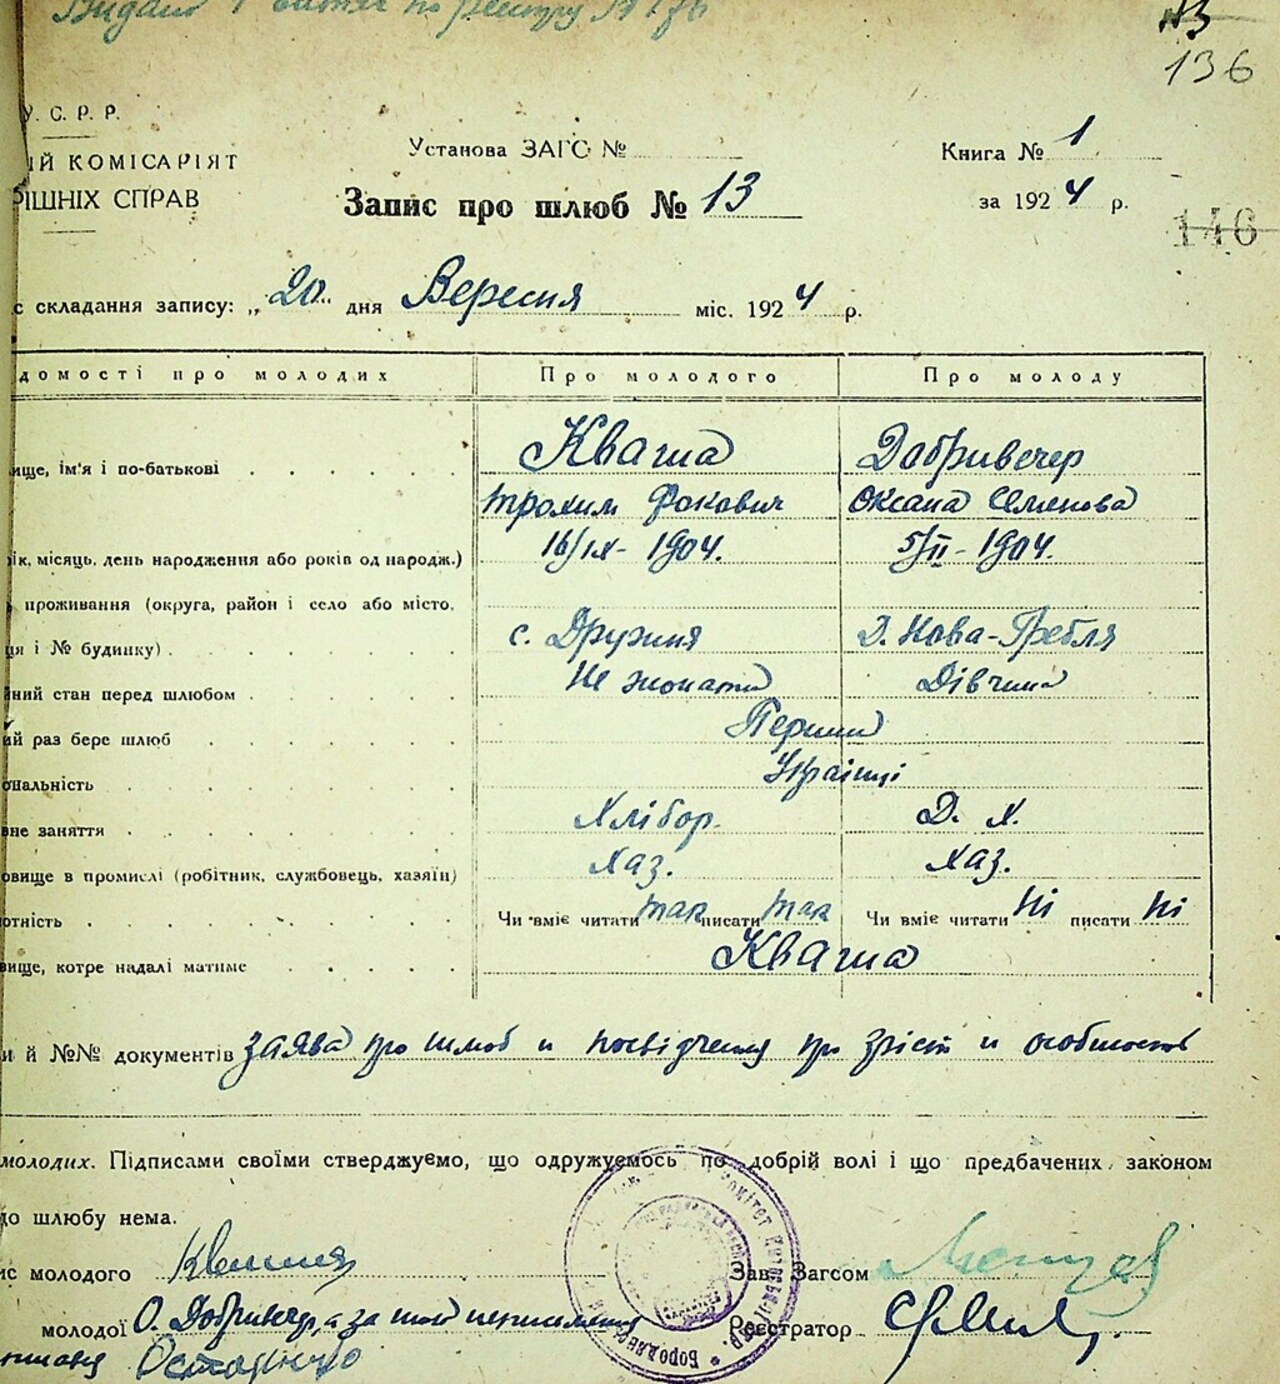 Видано
по реєстру №
136
У. С. Р. Р.
ІЙ КОМІСАРІЯТ
РІШНІХ СПРАВ
Установа ЗАГС №
Книга № 1
Запис про шлюб № 13
за 1924 р.
146
с складання запису: „20" дня Вересня міс. 1924 р.
домості про молодих Про молодого Про молоду
ище, ім'я і по-батькові Кваша Добривечер
Трохим Фокович Оксана Семенова
ік, місяць, день народження або років од народж.) 16/IX- 1904. 5/II- 1904.
проживання (округа, район і село або місто,
ця і № будинку) с. Дружня Д. Нова-Гребля
йний стан перед шлюбом Не жонатий Дівчина
ий раз бере шлюб Перший
ональність Українці
вне заняття Хлібор. Д. Х.
овище в промислі (робітник, службовець, хазяїн) Хаз. Хаз.
отність Чи вміє читати так писати так Чи вміє читати Ні писати Ні
вище, котре надалі матиме Кваша
и й №№ документів заява про шлюб и посвідчення про зріст и особистость
молодих. Підписами своїми стверджуємо, що одружуємось по добрій волі і що предбачених законом
до шлюбу нема.
ис молодого Зав. Загсом
молодої О. Добривечер, а за неї неписьменну Реєстратор